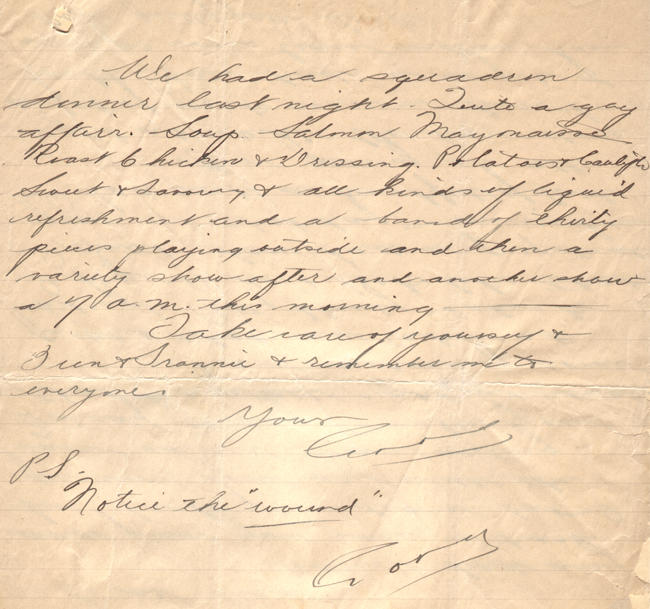 We had a squadron
dinner last night. Quite a gay
affair. Soup. Salmon Mayonaise
Roast Chicken & Dressing. Potatoes &
Sweet & Savoury & all kinds of liquid
refreshment and a band of thirty
pieces playing outside and then a
variety show after and another show
a 7 a.m. this morning
Take care of yourself &
& Grannie & remember me to
everyone.
Your
P.S.
Notice the "wound"